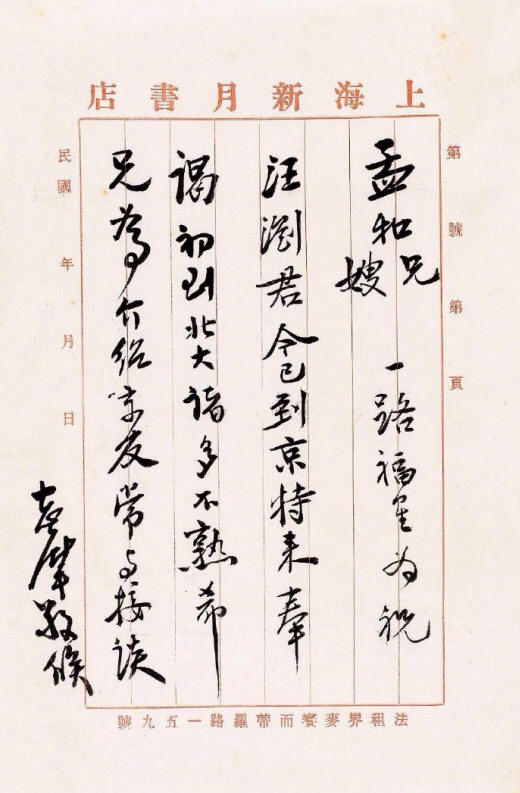 上海新月書店
第 號 第 頁
孟和兄
嫂 一路福星为祝
汪瀏君今已到京特来奉
謁初到北大諸多不熟希
兄為介绍京友常与接谈
敬候
民國 年 月 日
法租界麥賽而蒂羅路一五九號